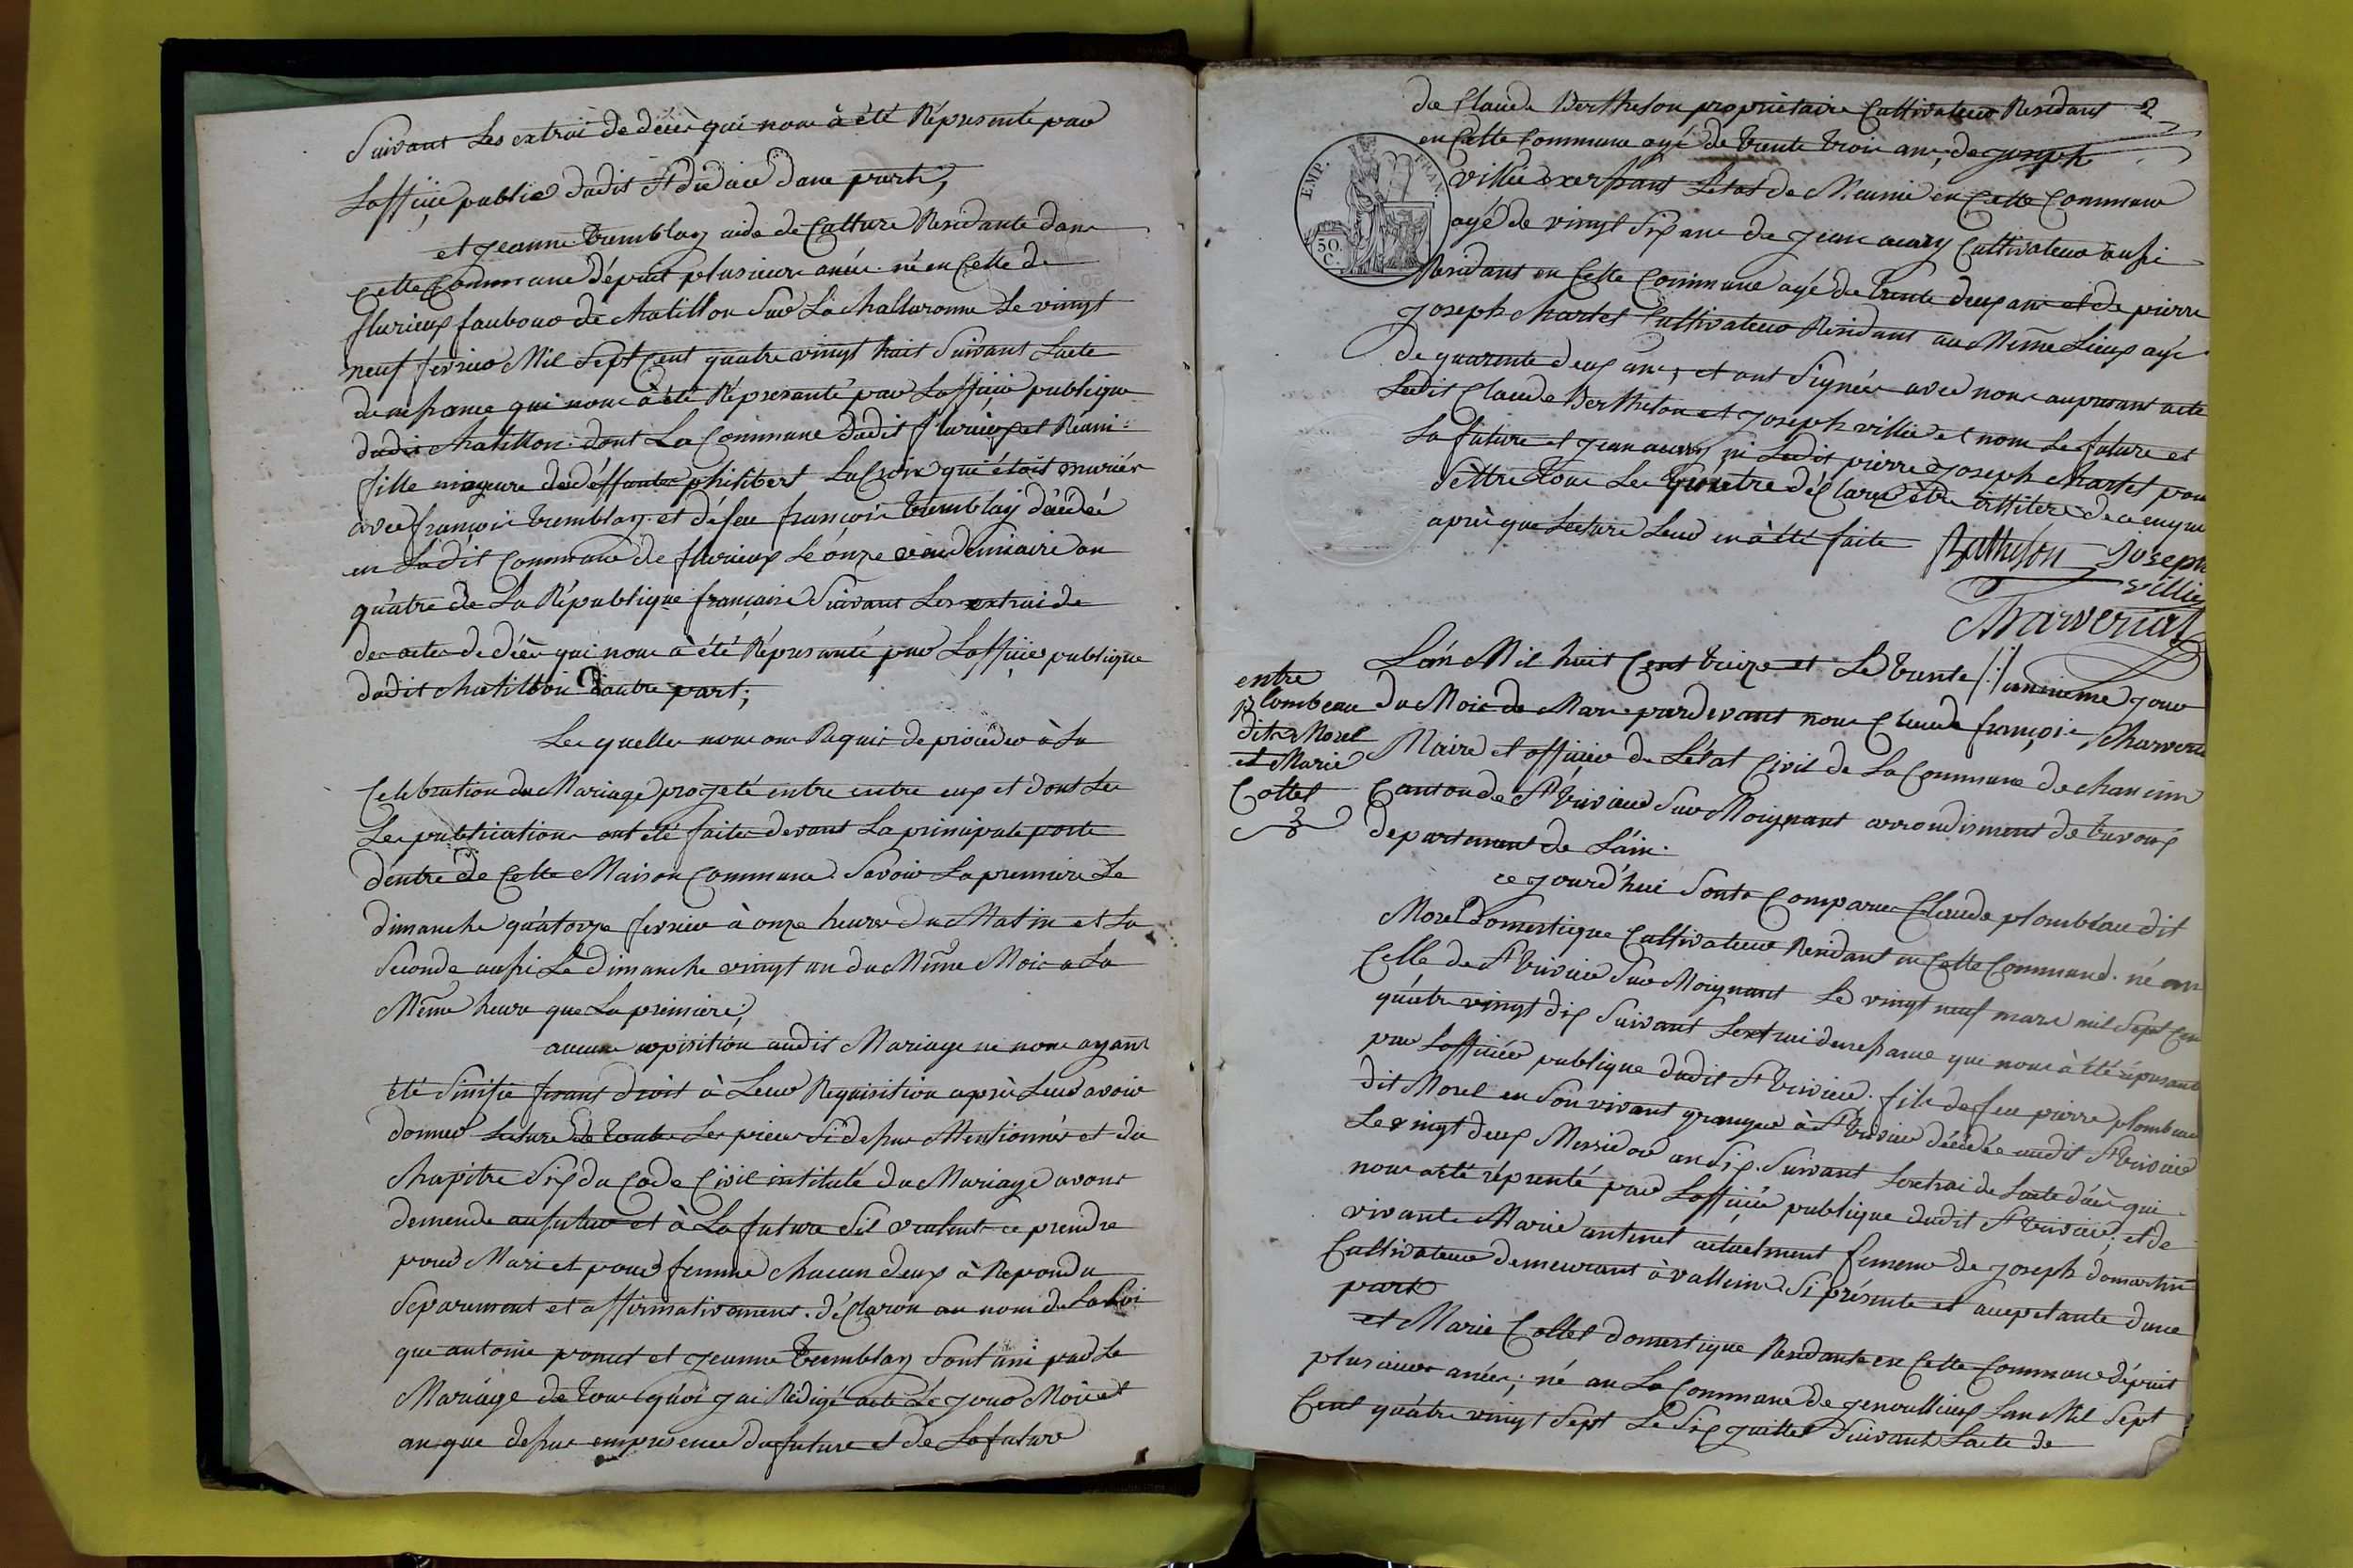 Suivant Les extrai de décès qui nous à été Réprésenté par
Lofficié public dudit St didier dune part,
et jeanne tremblay aide de Culture Residante dans
Cette Commune dépuit plusieurs anée né en Celle de
flurieux faubour de chatillon Sur La challaronne Le vingt
neuf fevrier Mil Sept Cent quatre vingt huit Suivant Lacte
de nessance qui nous à été Répresenté par Lofficié publique
dudit chatillon dont La Commune dudit flurieux et Réuni=
fille mageure de déffunte philibert LaCroix qui étoit mariée
avec françois tremblay et défeu françois tremblay décédé
en Ladit Commune de flurieux Le onze vendemiaire an
quatre de La République française Suivant Les extrai de
des actes de décès qui nous à été Répresenté par Lofficier publique
dudit chatillon dautre part;
Les quelles nous ons Requis de procéder à La
Celebration du Mariage projeté entre entre eux et dont Les
Les publications ont été faites devant La principale porte
dentré de Cette Maison Commune Savoir La premiere Le
dimanche quatorze fevrier à onze heures du Matin et La
Seconde aussi Le Dimanche vingt un du Même Mois a La
Même heure que La premiere;
aucune opisition audit Mariage ne nous ayant
été Sinifié fesant droit à Leur Requisition après Leur avoir
donner Lecture de toutes Les pieces Si dessus Mentionnés et du
chapitre Six du Code Civil intitulé du Mariage avons
demende au futur et à La future Sil veulent ce prendre
pour Mari et pour femme chacun deux à Repondu
Separement et affirmativement. déClaron au nom de La Loi
que antoine ponut et jeanne tremblay Sont uni par Le
Mariage de tous quoi jai Rédigé acte Le jour Mois et
an que dessus empresence du future et de La future
de Claude Berthelon propriétaire Cultivateur Residant 2
en Cette Commune agé de trente trois ans, de joseph
EMP. FRAN.
50.
C.
villié exersant Letat de Meunié en Cette Commune
agé de vingt Six ans de jean aucuy Cultivateur aussi
Residant en Cette Commune agé de trente deux ans et de pierre
joseph chartet Cultivateur Residant au Même Lieux agé
de quarente deux ans, et ont Signées avec nous aupresant acte
Ledit Claude Berthelon et joseph villié et nom Le future et
La future et jean aucuy ni Ledit pierre joseph chartet pour
Létre tous Les déClaré être illitéré de ce enquis
après que Lecture Leur en à été faite
Berthelon Joseph
villier
Charveriat
entre
plombeau
dit Morel
et Marie
Cottet
Lán Mil huit Cent treize et Le trente /:/ unnieme jour
du Mois de Mars pardevant nous Claude françois Charveria
Maire et officier de Létat Civil de La Commune de chaneins
Canton de St trivier Sur Moignant arrondisment de trevoux
departement de Láin.
ce jourd'hui Sonts Comparus Claude plombeau dit
Morel Domestique Cultivateur Residant en Cette Commune. né en
Celle de St trivier Sur Moignant Le vingt neuf mars mil Sept Cen
quatre vingt dix Suivant Lextrai denessance que nous à été répresante
par Lofficiér publique dudit St trivier. fils de feu pierre plombeau
dit Morel en Son vivant granger à St trivier décédée audit St trivier
Le vingt deux Messidor an Six. Suivant Lextrai de Lacte décès qui
nous acté réprenté par Lofficié publique dudit St trivier; et de
vivante Marie antinet actuelment femme de joseph domartin
Cultivateur demeurant à valleins Si présente et acceptante dune
part
et Marie Cottet domestique Residante en Cette Commune dépuit
plusieurs anées; né au La Commune de genoullieux Lan Mil Sept
Cent quatre vingt Sept Le Six juillet Suivant Lacte de